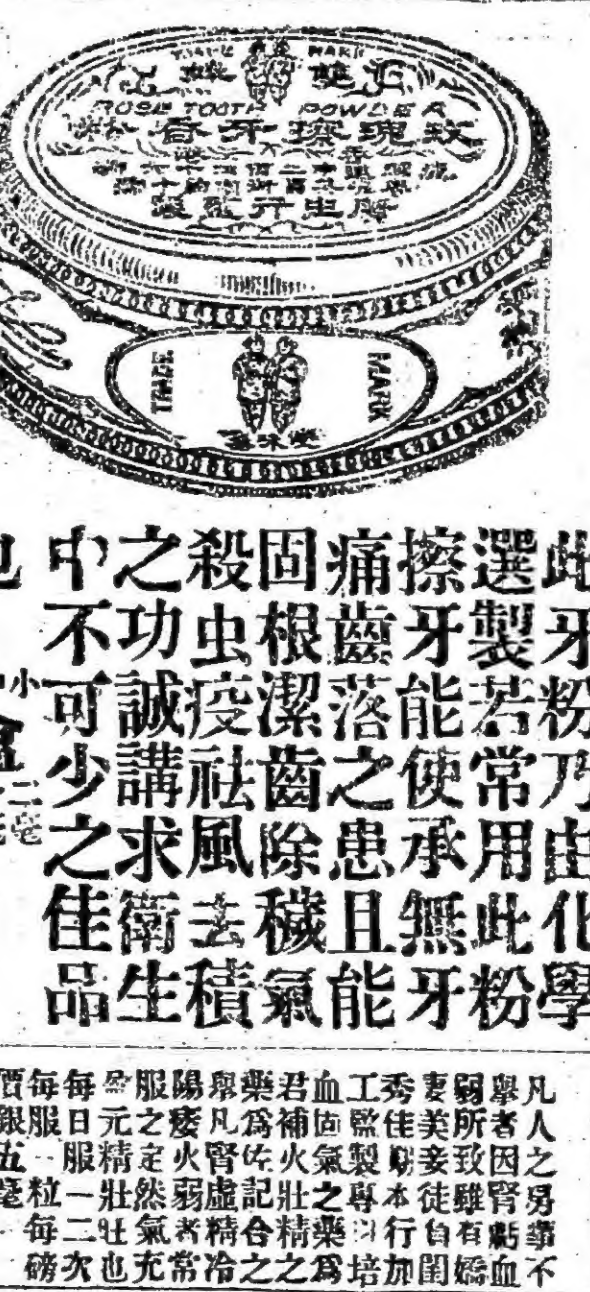 TRADE MARK
雙
ROSE TOOTH POWDER
玫瑰擦牙香粉
TRADE MARK
此牙粉乃由化學
選製若常用此粉
擦牙能使承無牙
痛齒落之患且能
固根潔齒除穢氣
殺虫疫祛風去積
之功誠講求衛生
中不可少之佳品
也
小
二毫
凡人之身體不
舉者因腎虧血
弱所致雖有嬌
妻美妾徒自閨
秀佳 本行加
工監製專 培
血固氣之藥爲
君補火壯精之
藥爲佐記合之
舉凡腎虛精冷
陽痿火弱者常
服之定然氣充
元精壯壯也
每日服一二次
每服 粒每磅
價銀五毫